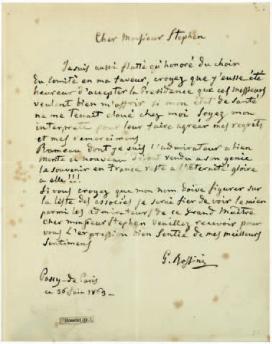 Cher Monsieur Stephen
Je suis aussi flatté qu'honoré du choix
du Comité en ma faveur, croyez que j'eusse été
heureux d'accepter la Présidence que ces Messieurs
veulent bien m'offrir si mon état de santé
ne me tenait cloué chez moi Soyez mon
interprete pour leur faire agréer mes regrets
et mes remerciements
Rameau dont je suis l'admirateur a bien
merité ce nouveau rendu a son genie
la souvenir en France reste a l'éternité gloire
a elle!!!
Si vous croyez que mon nom doive figurer sur
la liste des associés je serai fier de voir le mien
parmi les admirateurs de ce grand Maître
Cher monsieur Stephen veuillez recevoir pour
vous l'expression bien sentie de mes meilleurs
Sentimens
G. Rossini
Passy-de Paris
ce 26 Juin